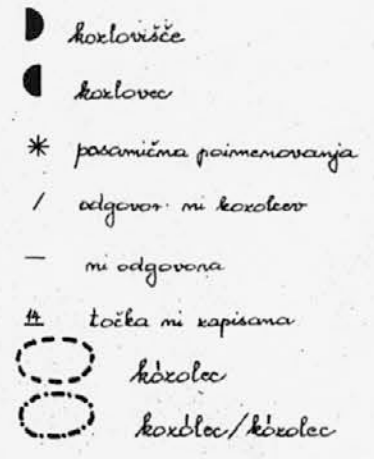 kozlovišče
kozlovec
* posamična poimenovanja
/ odgovor: ni kozolcev
— ni odgovora
14 točka ni zapisana
kózolec
kozólec/kózolec